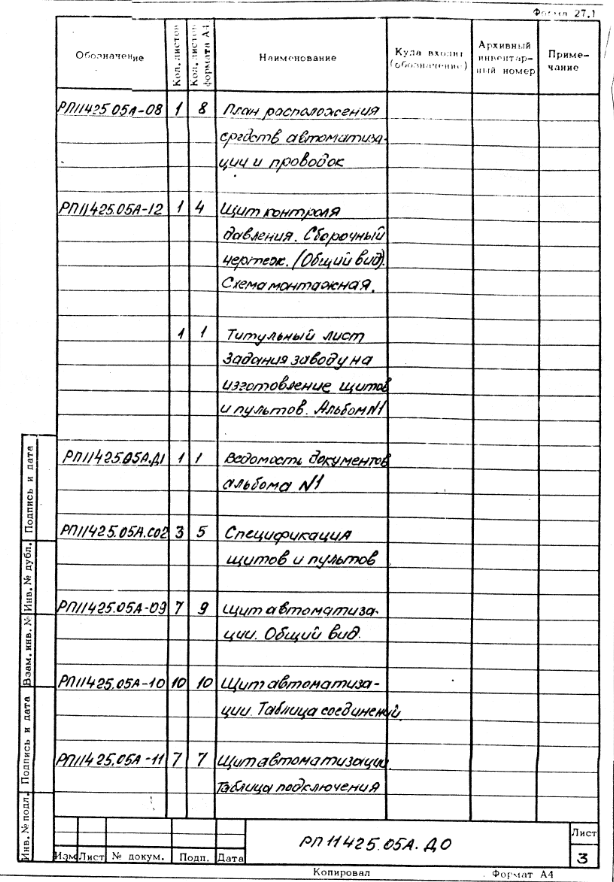 Форма 27.1
Обозначение Кол. листов Кол. листов формата А4 Наименование Куда входит (обозначение) Архивный инвентарный номер Примечание
РП11425.05А-08 1 8 План расположения
средств автоматиза-
ции и проводок
РП11425.05А-12 1 4 Щит контроля
давления. Сборочный
чертеж. (Общий вид).
Схема монтажная.
1 1 Титульный лист
Задания заводу на
изготовление щитов
и пультов. Альбом N1
РП11425.05А.Д1 1 1 Ведомость документов
альбома N1
РП11425.05А.С02 3 5 Спецификация
щитов и пультов
РП11425.05А-09 7 9 Щит автоматиза-
ции. Общий вид.
РП11425.05А-10 10 10 Щит автоматиза-
ции. Таблица соединений.
РП11425.05А-11 7 7 Щит автоматизации
Таблица подключения
Инв. № подл. Подпись и дата Взам. инв. № Инв. № дубл. Подпись и дата
РП11425.05А.Д0
Лист
3
Изм Лист № докум. Подп. Дата
Копировал Формат А4